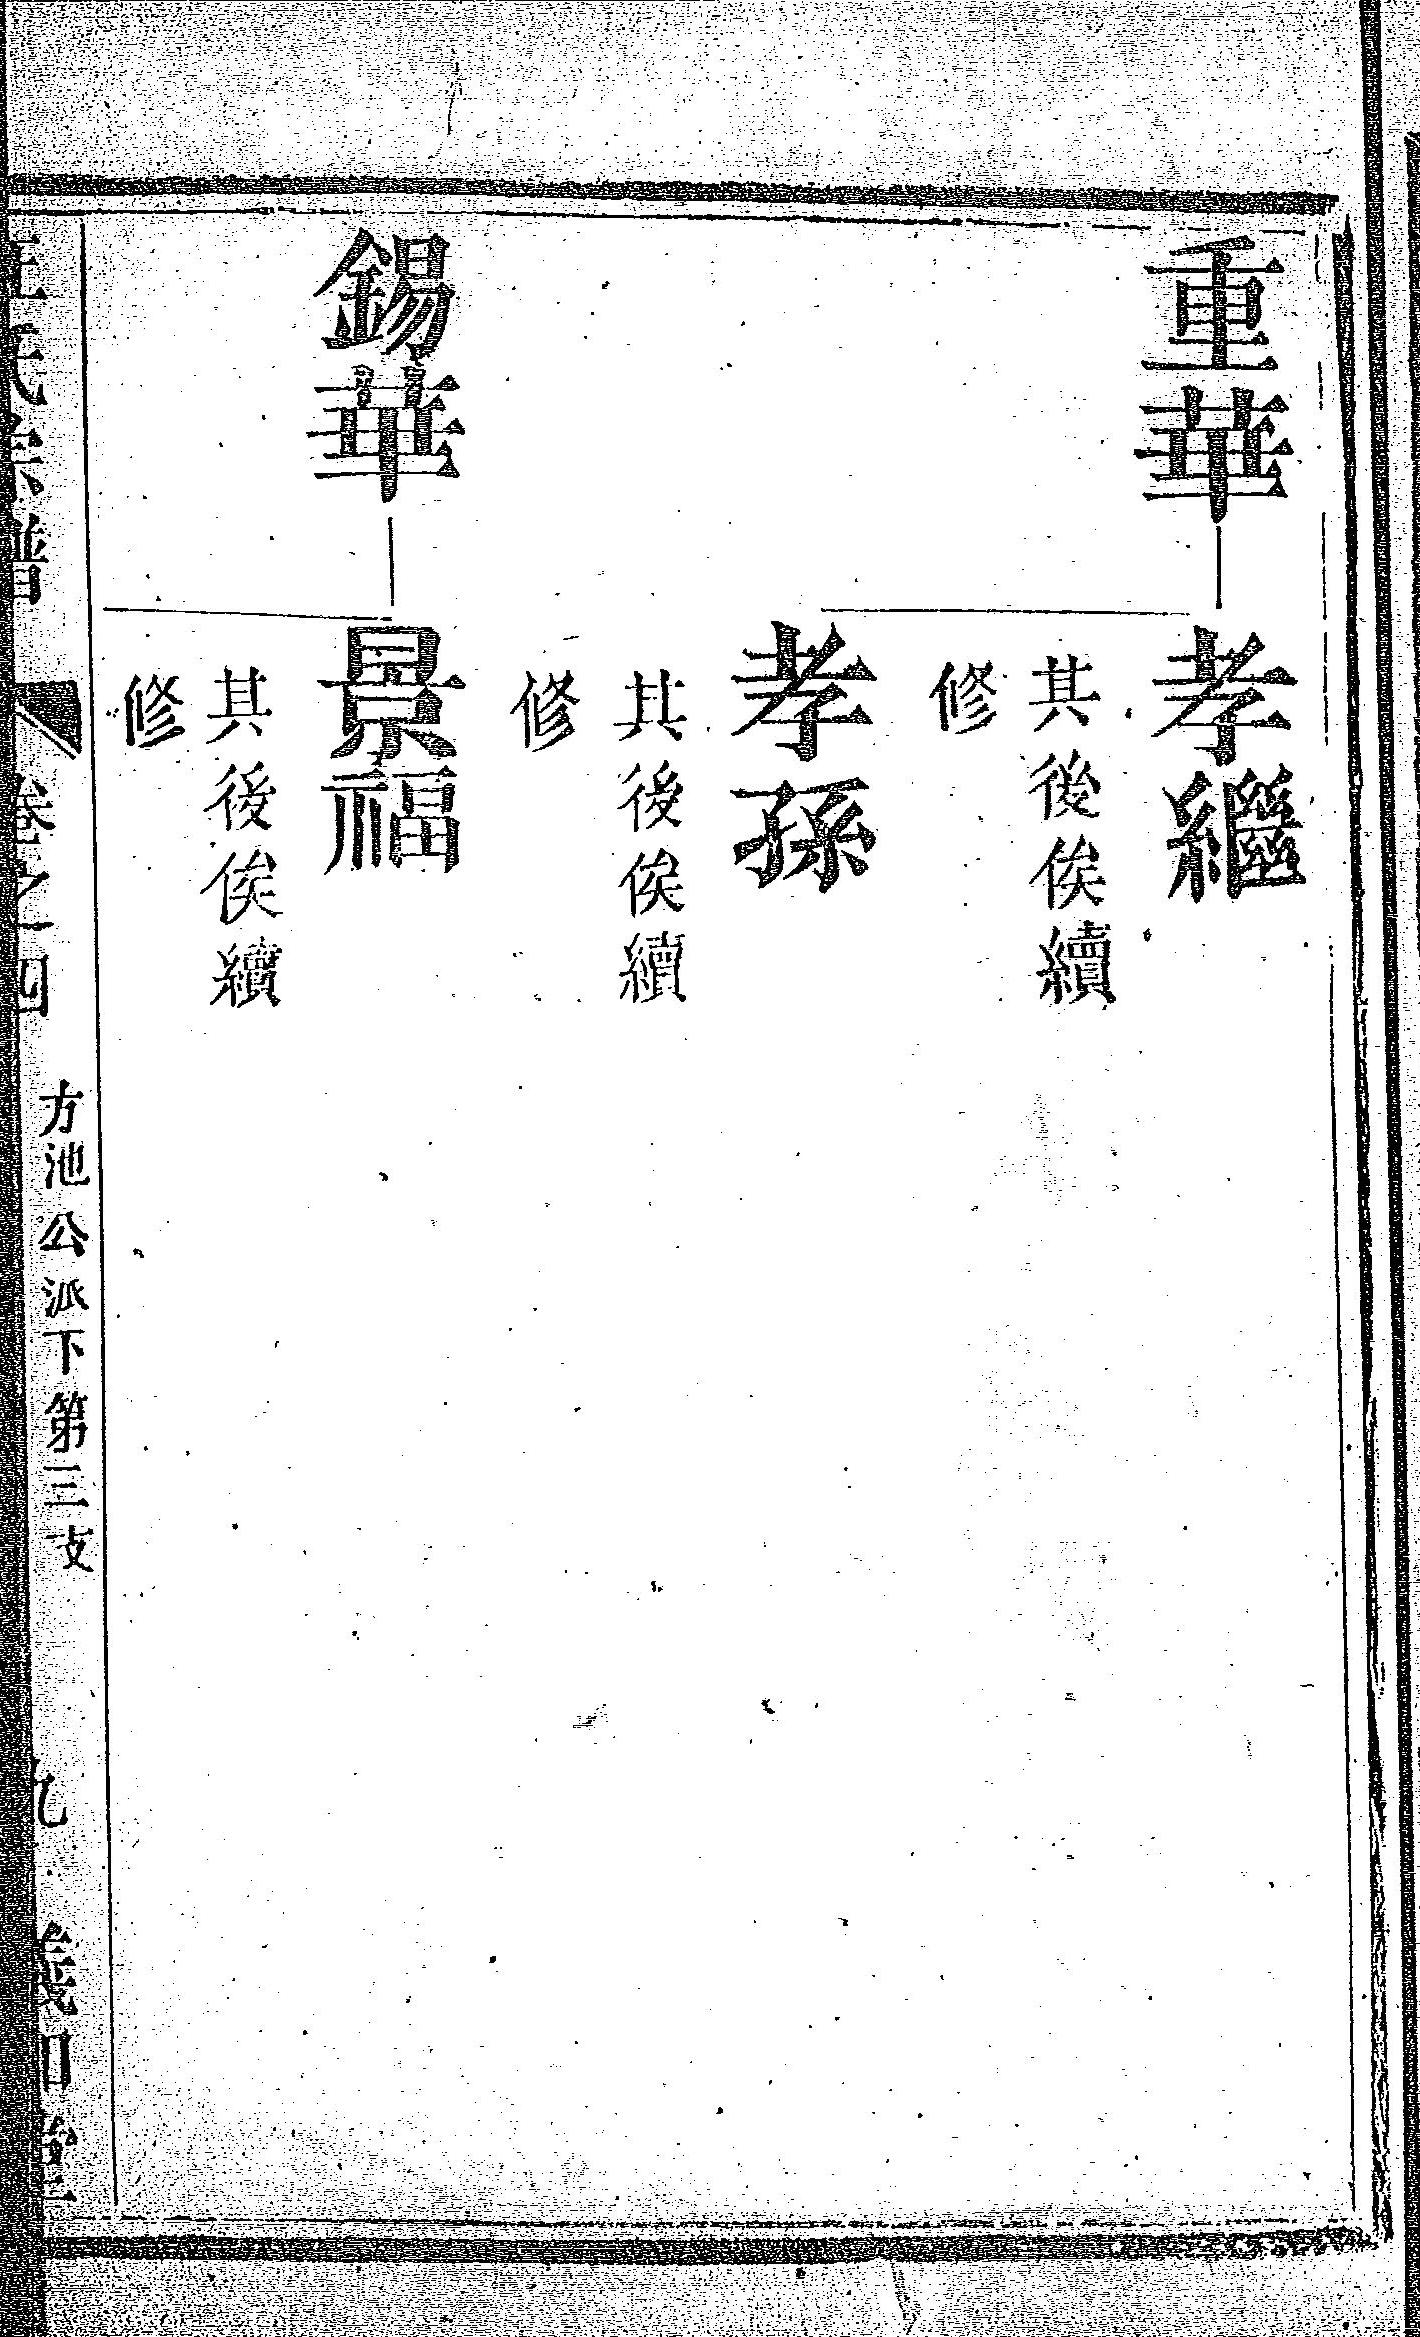 重華
孝繼
其後俟續
修
孝孫
其後俟續
修
錫華
景福
其後俟續
修
氏宗譜
卷之四
方池公派下第三支
九
義田堂